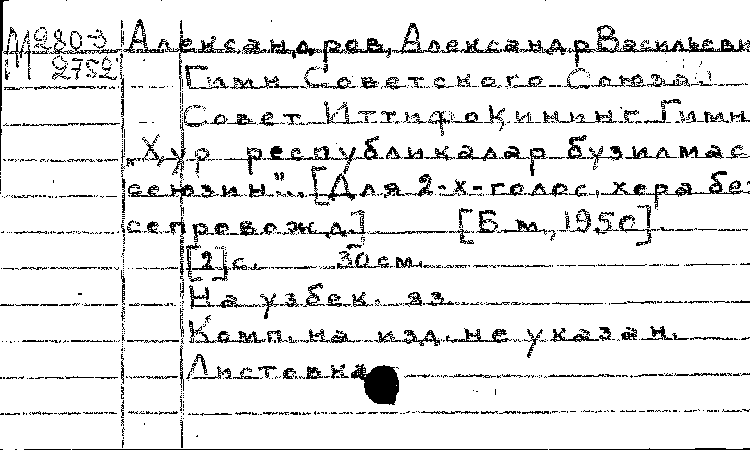 М280-3
2752
Александров, Александр Васильеви
Гимн Советского Союза.
Совет Иттифоқининг Гимн
„Ҳур республикалар бузилмас
сеюзин"... [Для 2-х-голос. хора без
сопровожд.] [Б.м., 1950].
[2] с. 30 см.
На узбек. яз.
Комп. на изд. не указан.
Листовка